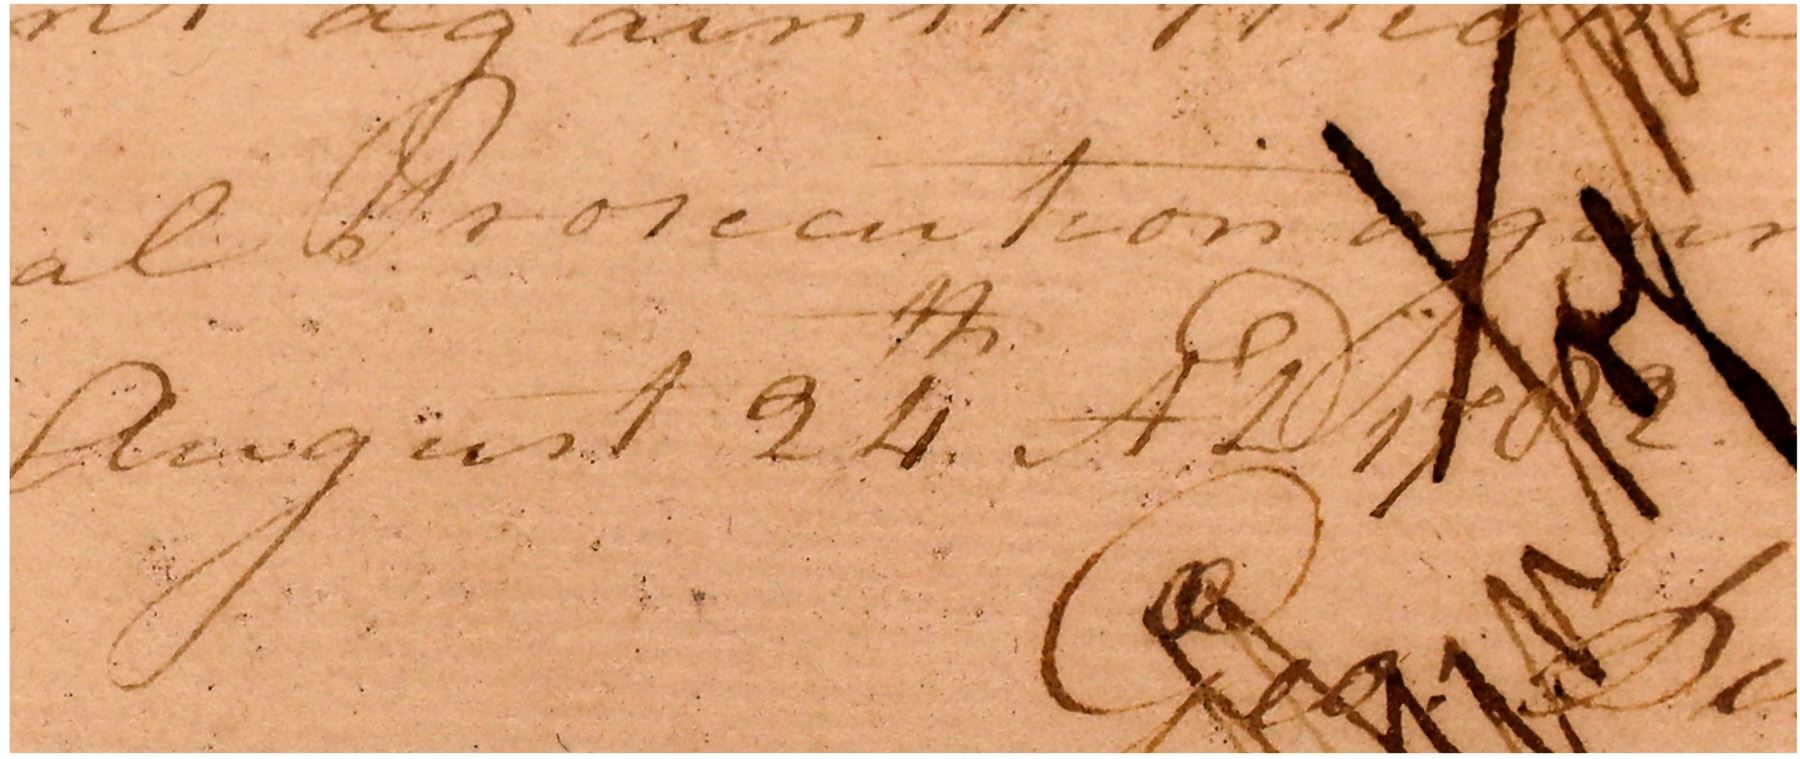 against
al Prosecution again
August 24th. AD 1782.
Geo: